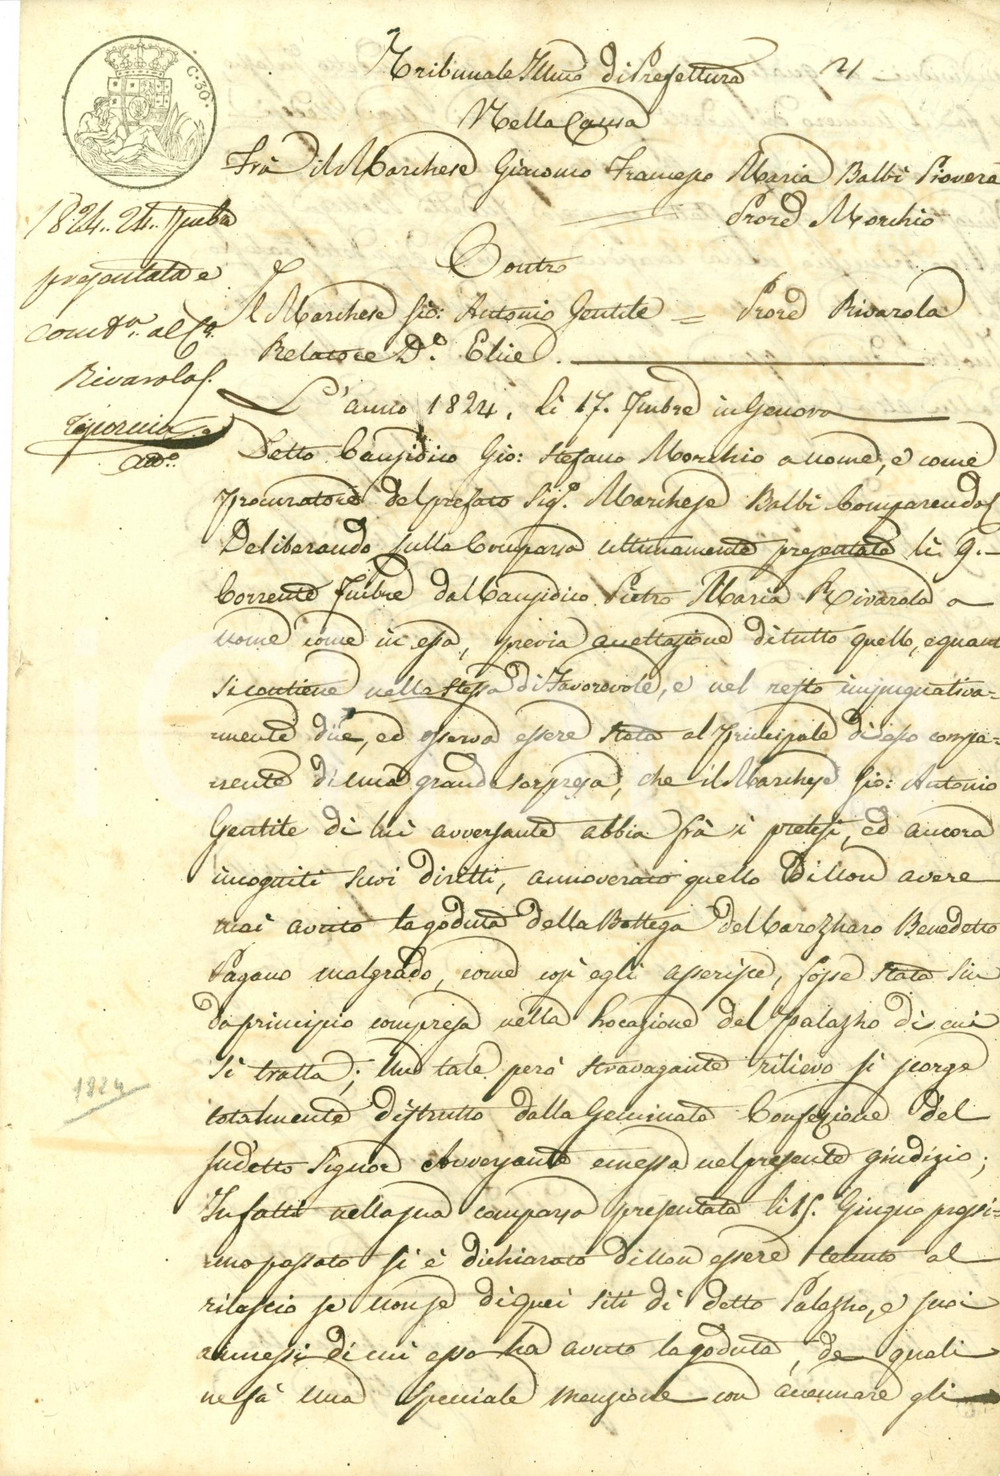 C. 30.
Tribunale Illmo di Prefettura
Nella Causa
Frà il Marchese Giacomo Francesco Maria Balbi Piovera
Prored Morchio
Contro
Il Marchese Gio: Antonio Gentile = Prored Rivarola
Relatore D.e Elice.
1824.. 24.. 7mbre
presentata e
al
Rivarola
L'anno 1824, li 17. 7mbre in Genova
Detto Causidico Gio: Stefano Morchio a nome, e come
Procuratore del prefato Sig.e Marchese Balbi Comparendo
Deliberando sulla Comparsa ultimamente presentata li 9.
Corrente 7mbre dal Causidico Pietro Maria Rivarola a
nome come in essa, previa accettazione di tutto quello, e quant
si contiene nella stessa di Favorovole, e nel resto impugnativa-
mente dice, ed osserva essere stata al Principale di esso compa-
rente di una grande sorpresa, che il Marchese Gio: Antonio
Gentile di lui avversante abbia frà i pretesi, ed ancora
incogniti suoi diritti, annoverato quello di non avere
mai avuto la goduta della Bottega del Carozzaro Benedetto
Pagano malgrado, come così egli asserisce, fosse stata sin
da principio compresa nella Locazione del palazzo di cui
si tratta; Un tale però stravagante rilievo si scorge
totalmente distrutto dalla Geminata Confezione del
sudetto Signor Avversante emessa nel presente giudizio;
Infatti nella sua comparsa presentata li 15. Giugno prossi=
mo passato si è dichiarato di non essere tenuto al
rilascio se non se di quei siti di detto Palazzo, e suoi
annessi di cui esso ha avuto la goduta, de quali
ne fà una speciale menzione con accennare gli
1824